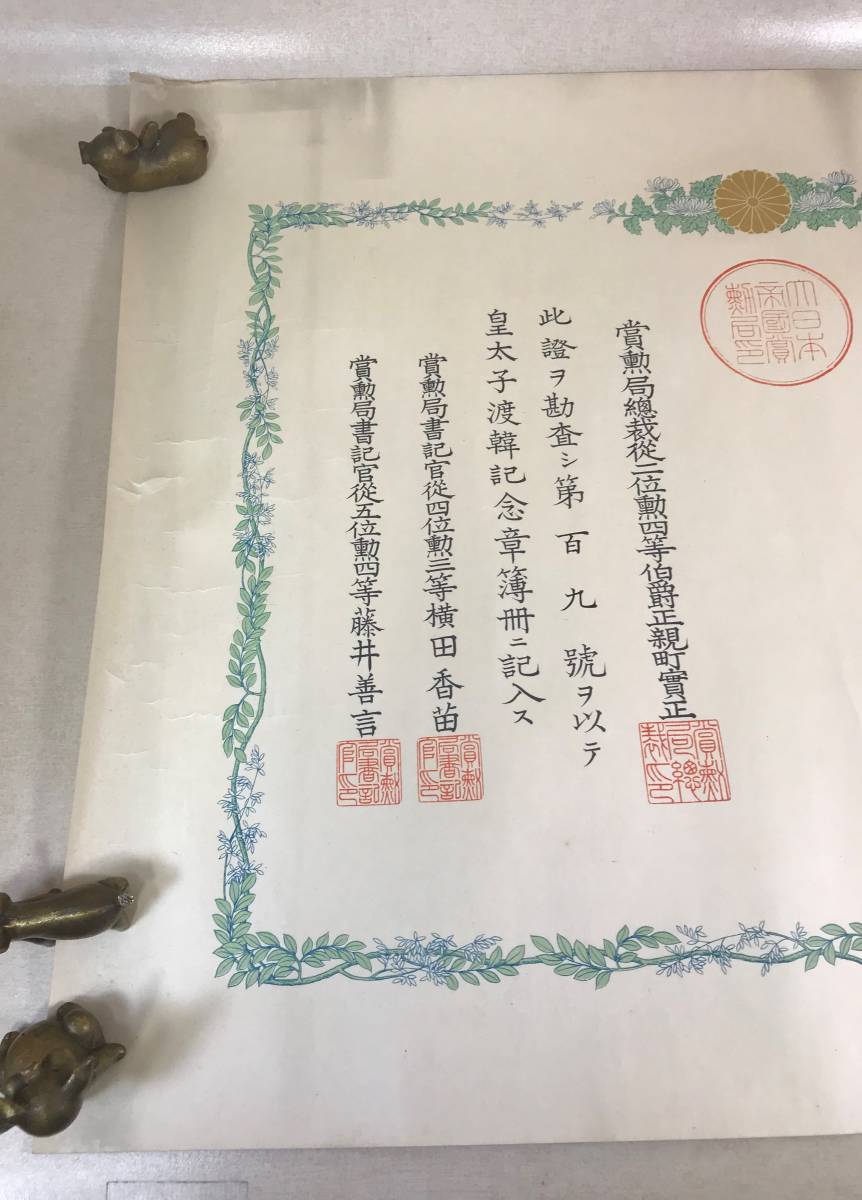 大日本
帝國賞
勳局印
賞勳局總裁從二位勳四等伯爵正親町實正
賞勳局總裁印
此證ヲ勘査シ第百九號ヲ以テ
皇太子渡韓記念章簿冊ニ記入ス
賞勳局書記官從四位勳三等橫田香苗
賞勳局書記官印
賞勳局書記官從五位勳四等藤井善言
賞勳局書記官印